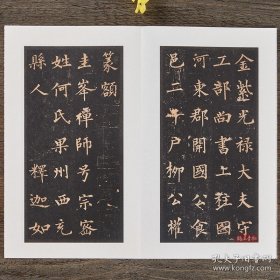 金紫光祿大夫守
工部尚書上柱國
河東郡開國公食
邑二千戶柳公權
篆額
圭峯禪師号宗密
姓何氏果州西充
縣人 釋迦如